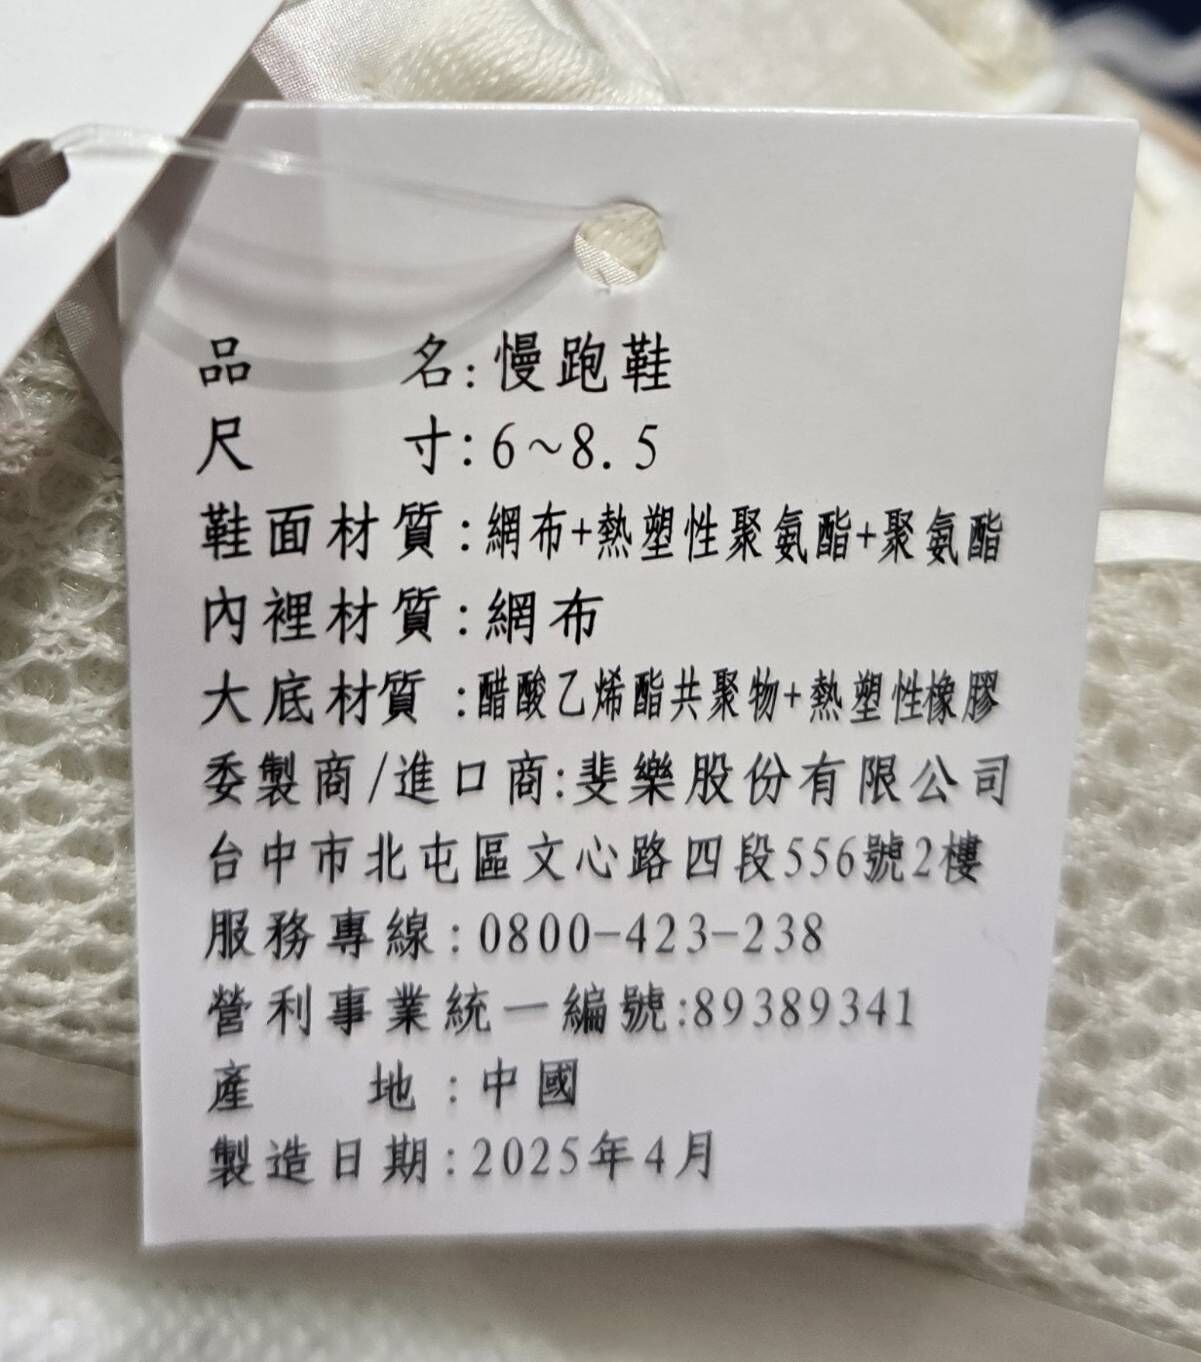 品名:慢跑鞋
尺寸:6~8.5
鞋面材質:網布+熱塑性聚氨酯+聚氨酯
內裡材質:網布
大底材質:醋酸乙烯酯共聚物+熱塑性橡膠
委製商/進口商:斐樂股份有限公司
台中市北屯區文心路四段556號2樓
服務專線:0800-423-238
營利事業統一編號:89389341
產地:中國
製造日期:2025年4月